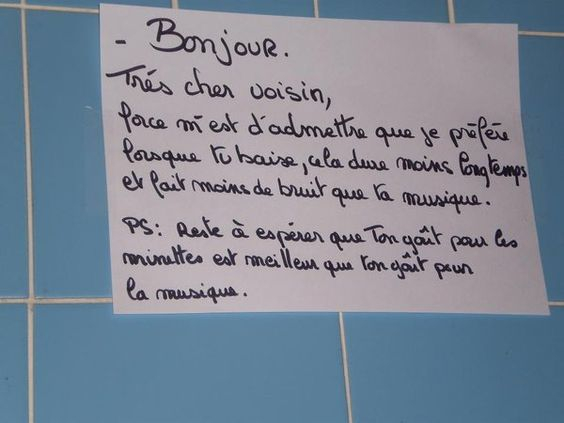 - Bonjour.
Trés cher voisin,
force m'est d'admettre que je préfère
lorsque tu baise, cela dure moins longtemps
et fait moins de bruit que ta musique.
PS: Reste à espérer que Ton goût pour les
minettes est meilleur que ton goût pour
la musique.